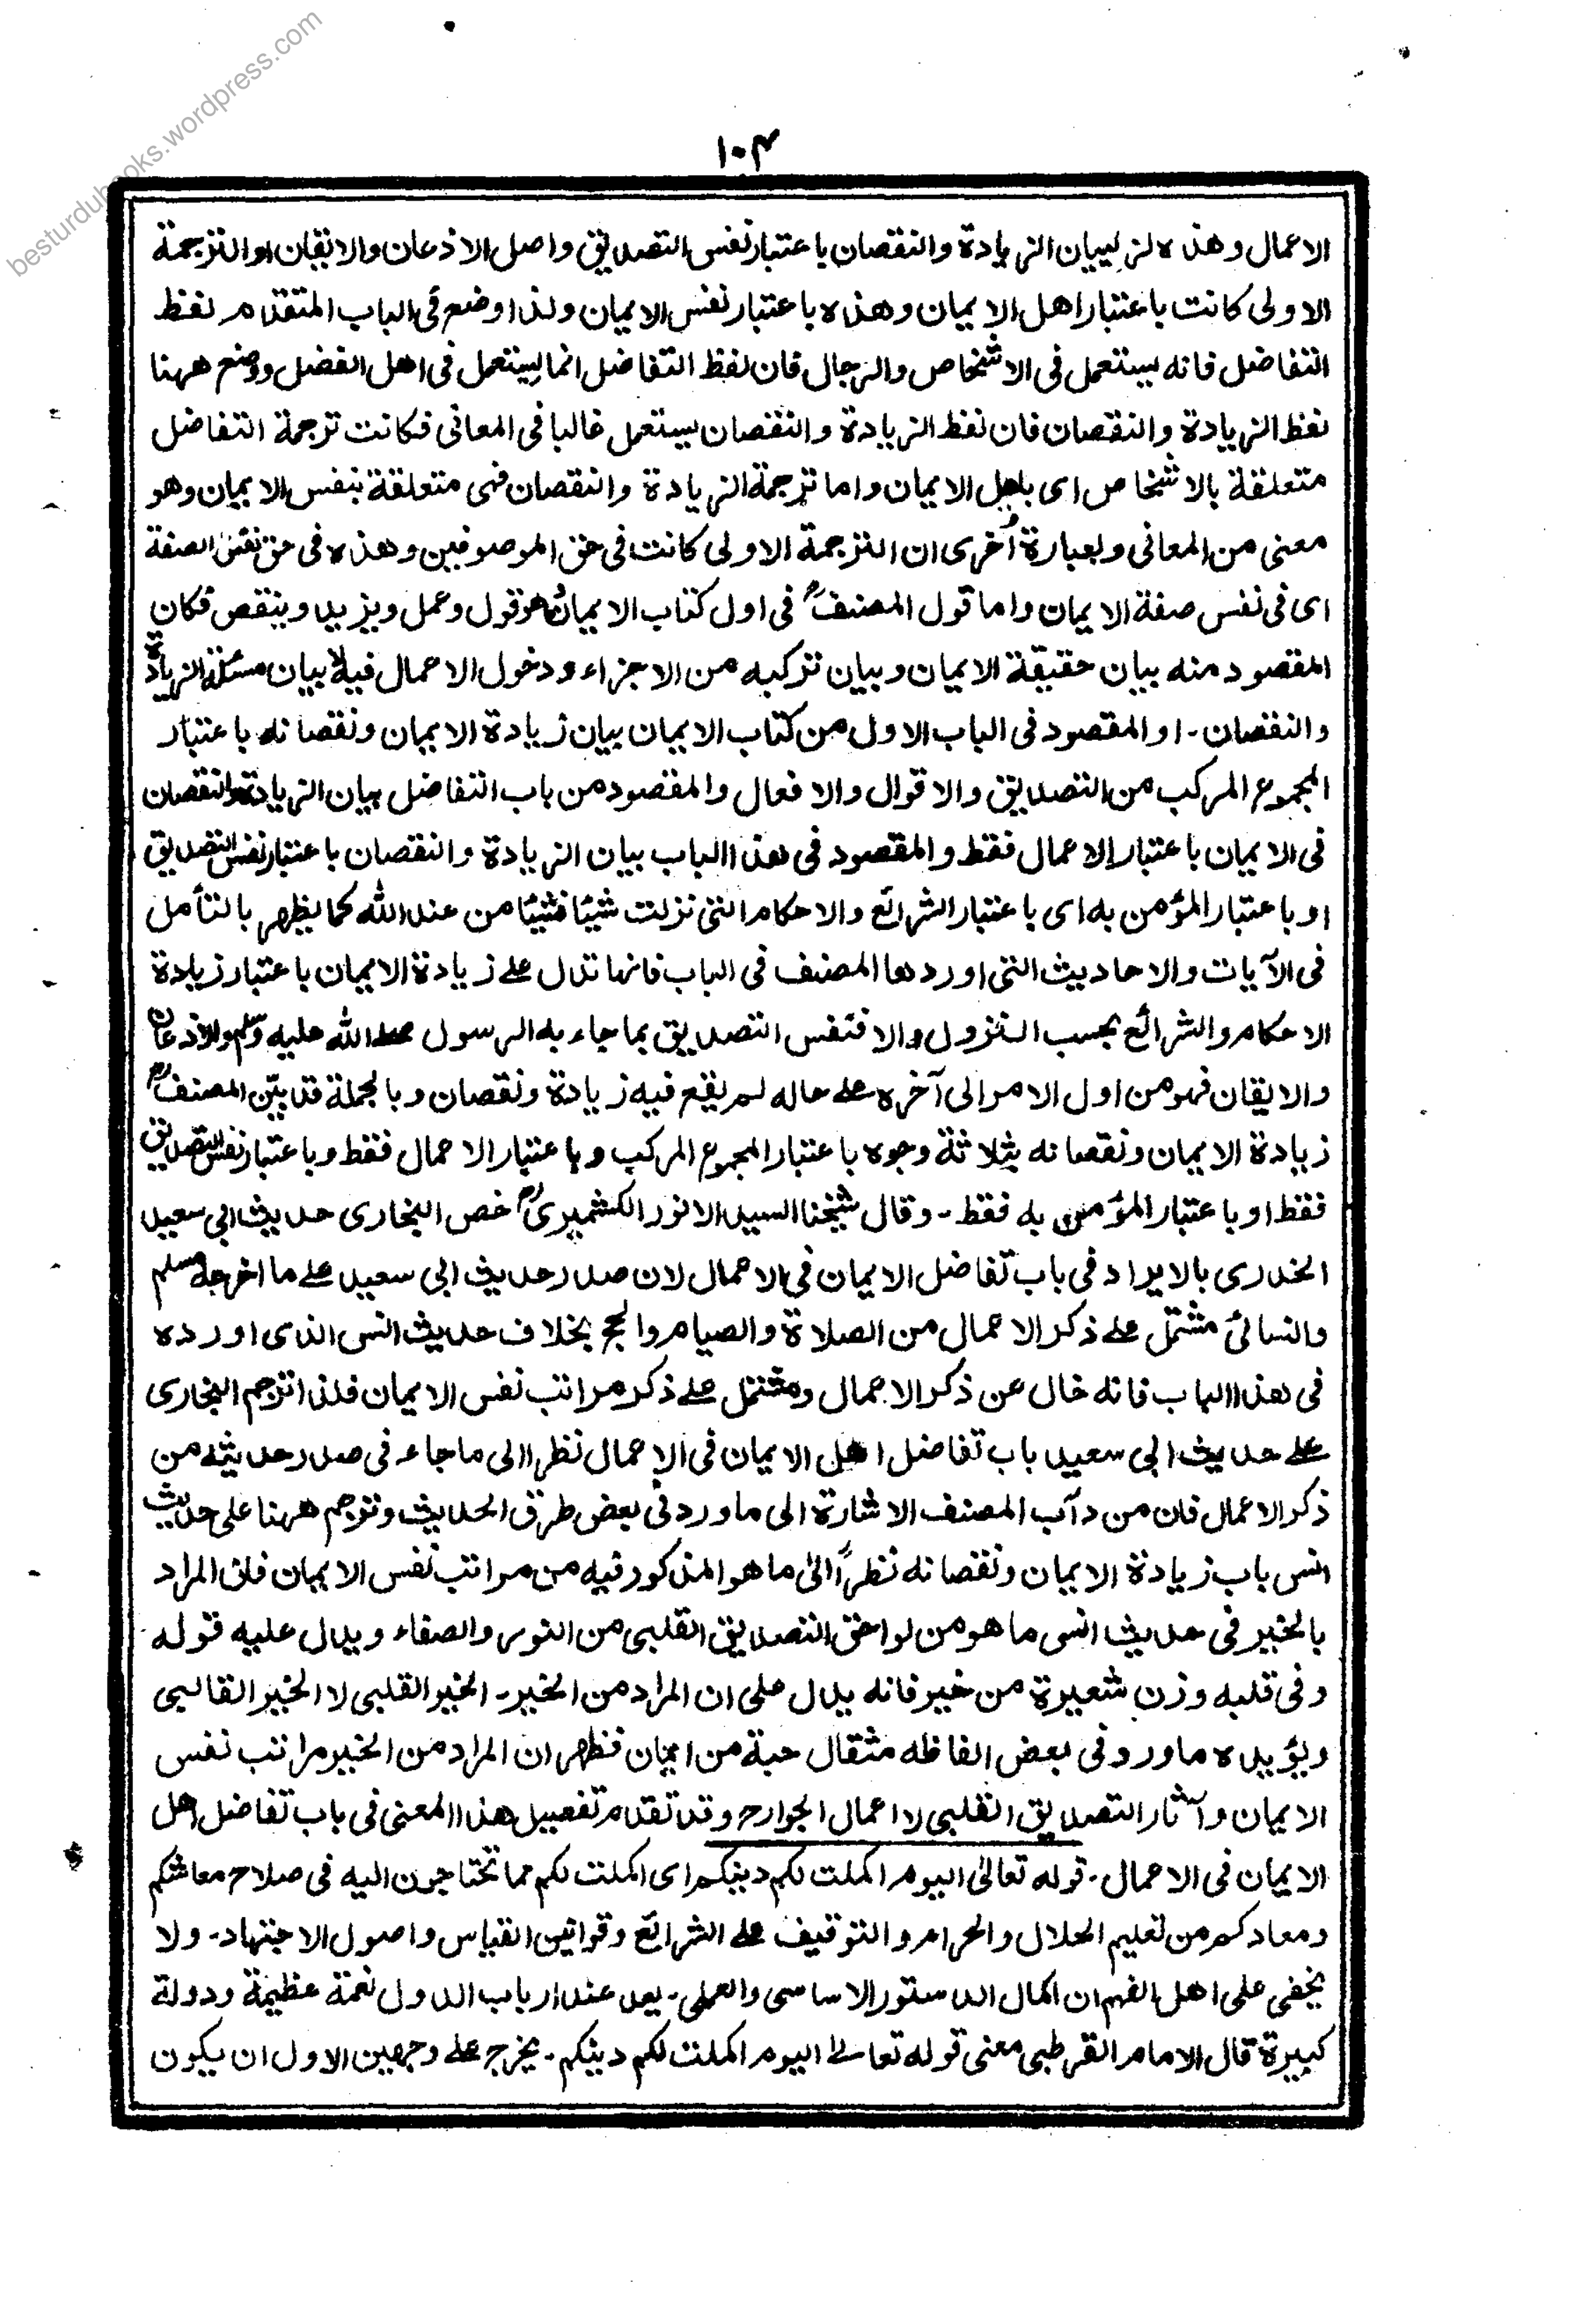 besturdubooks.wordpress.com
١٠٤
الاعمال وهذه لبيان الزيادة والنقصان باعتبار نفس التصديق واصل الاذعان والايقان او الترجمة
الاولى كانت باعتبار اهل الايمان وهذه باعتبار نفس الايمان ولذا وضع فى الباب المتقدم لفظ
التفاضل فانه يستعمل فى الاشخاص والرجال فان لفظ التفاضل انما يستعمل فى اهل الفضل ووضع ههنا
لفظ الزيادة والنقصان فان لفظ الزيادة والنقصان يستعمل غالبا فى المعانى فكانت ترجمة التفاضل
متعلقة بالاشخاص اى باهل الايمان واما ترجمة الزيادة والنقصان فهى متعلقة بنفس الايمان وهو
معنى من المعانى وبعبارة أخرى ان الترجمة الاولى كانت فى حق الموصوفين وهذه فى حق نفس الصفة
اى فى نفس صفة الايمان واما قول المصنفؒ فى اول كتاب الايمان هو قول وعمل ويزيد وينقص فكان
المقصود منه بيان حقيقة الايمان وبيان تركبه من الاجزاء ودخول الاعمال فيه لا بيان مسئلة الزيادة
والنقصان - او المقصود فى الباب الاول من كتاب الايمان بيان زيادة الايمان ونقصانه باعتبار
المجموع المركب من التصديق والاقوال والافعال والمقصود من باب التفاضل بيان الزيادة والنقصان
فى الايمان باعتبار الاعمال فقط والمقصود فى هذا الباب بيان الزيادة والنقصان باعتبار نفس التصديق
او باعتبار المؤمن به اى باعتبار الشرائع والاحكام التى نزلت شيئا فشيئا من عند الله كما يظهر بالتأمل
فى الآيات والاحاديث التى اوردها المصنف فى الباب فانها تدل على زيادة الايمان باعتبار زيادة
الاحكام والشرائع بحسب النزول والا فنفس التصديق بما جاء به الرسول صلى الله عليه وسلم والاذعان
والايقان فهو من اول الامر الى آخره على حاله لم يقع فيه زيادة ونقصان وبالجملة قد بيّن المصنفؒ
زيادة الايمان ونقصانه بثلاثة وجوه باعتبار المجموع المركب وباعتبار الاعمال فقط وباعتبار نفس التصديق
فقط او باعتبار المؤمن به فقط - وقال شيخنا السيد الانور الكشميرىؒ خص البخارى حديث ابى سعيد
الخدرى بالايراد فى باب تفاضل الايمان فى الاعمال لان صدر حديث ابى سعيد على ما اخرجه مسلم
والنسائى مشتمل على ذكر الاعمال من الصلاة والصيام والحج بخلاف حديث انس الذى اورده
فى هذا الباب فانه خال عن ذكر الاعمال ومشتمل على ذكر مراتب نفس الايمان فلذا ترجم البخارى
على حديث ابى سعيد باب تفاضل اهل الايمان فى الاعمال نظرا الى ما جاء فى صدر حديثه من
ذكر الاعمال فان من دآب المصنف الاشارة الى ما ورد فى بعض طرق الحديث وترجم ههنا على حديث
انس باب زيادة الايمان ونقصانه نظراً الىٰ ما هو المذكور فيه من مراتب نفس الايمان فان المراد
بالخير فى حديث انس ما هو من لواحق التصديق القلبى من النور والصفاء ويدل عليه قوله
وفى قلبه وزن شعيرة من خير فانه يدل على ان المراد من الخير - الخير القلبى لا الخير القالبى
ويؤيده ما ورد فى بعض الفاظه مثقال حبة من ايمان فظهر ان المراد من الخير مراتب نفس
الايمان وآثار التصديق القلبى لا اعمال الجوارح وقد تقدم تفصيل هذا المعنى فى باب تفاضل اهل
الايمان فى الاعمال - قوله تعالىٰ اليوم اكملت لكم دينكم اى اكملت لكم مما تحتاجون اليه فى صلاح معاشكم
ومعادكم من تعليم الحلال والحرام والتوقيف على الشرائع وقوانين القياس واصول الاجتهاد - ولا
يخفى على اهل الفهم ان اكمال الدستور الاساسى والعملى - يعد عند ارباب الدول نعمة عظيمة ودولة
كبيرة قال الامام القرطبى معنى قوله تعالى اليوم اكملت لكم دينكم - يخرج على وجهين الاول ان يكون